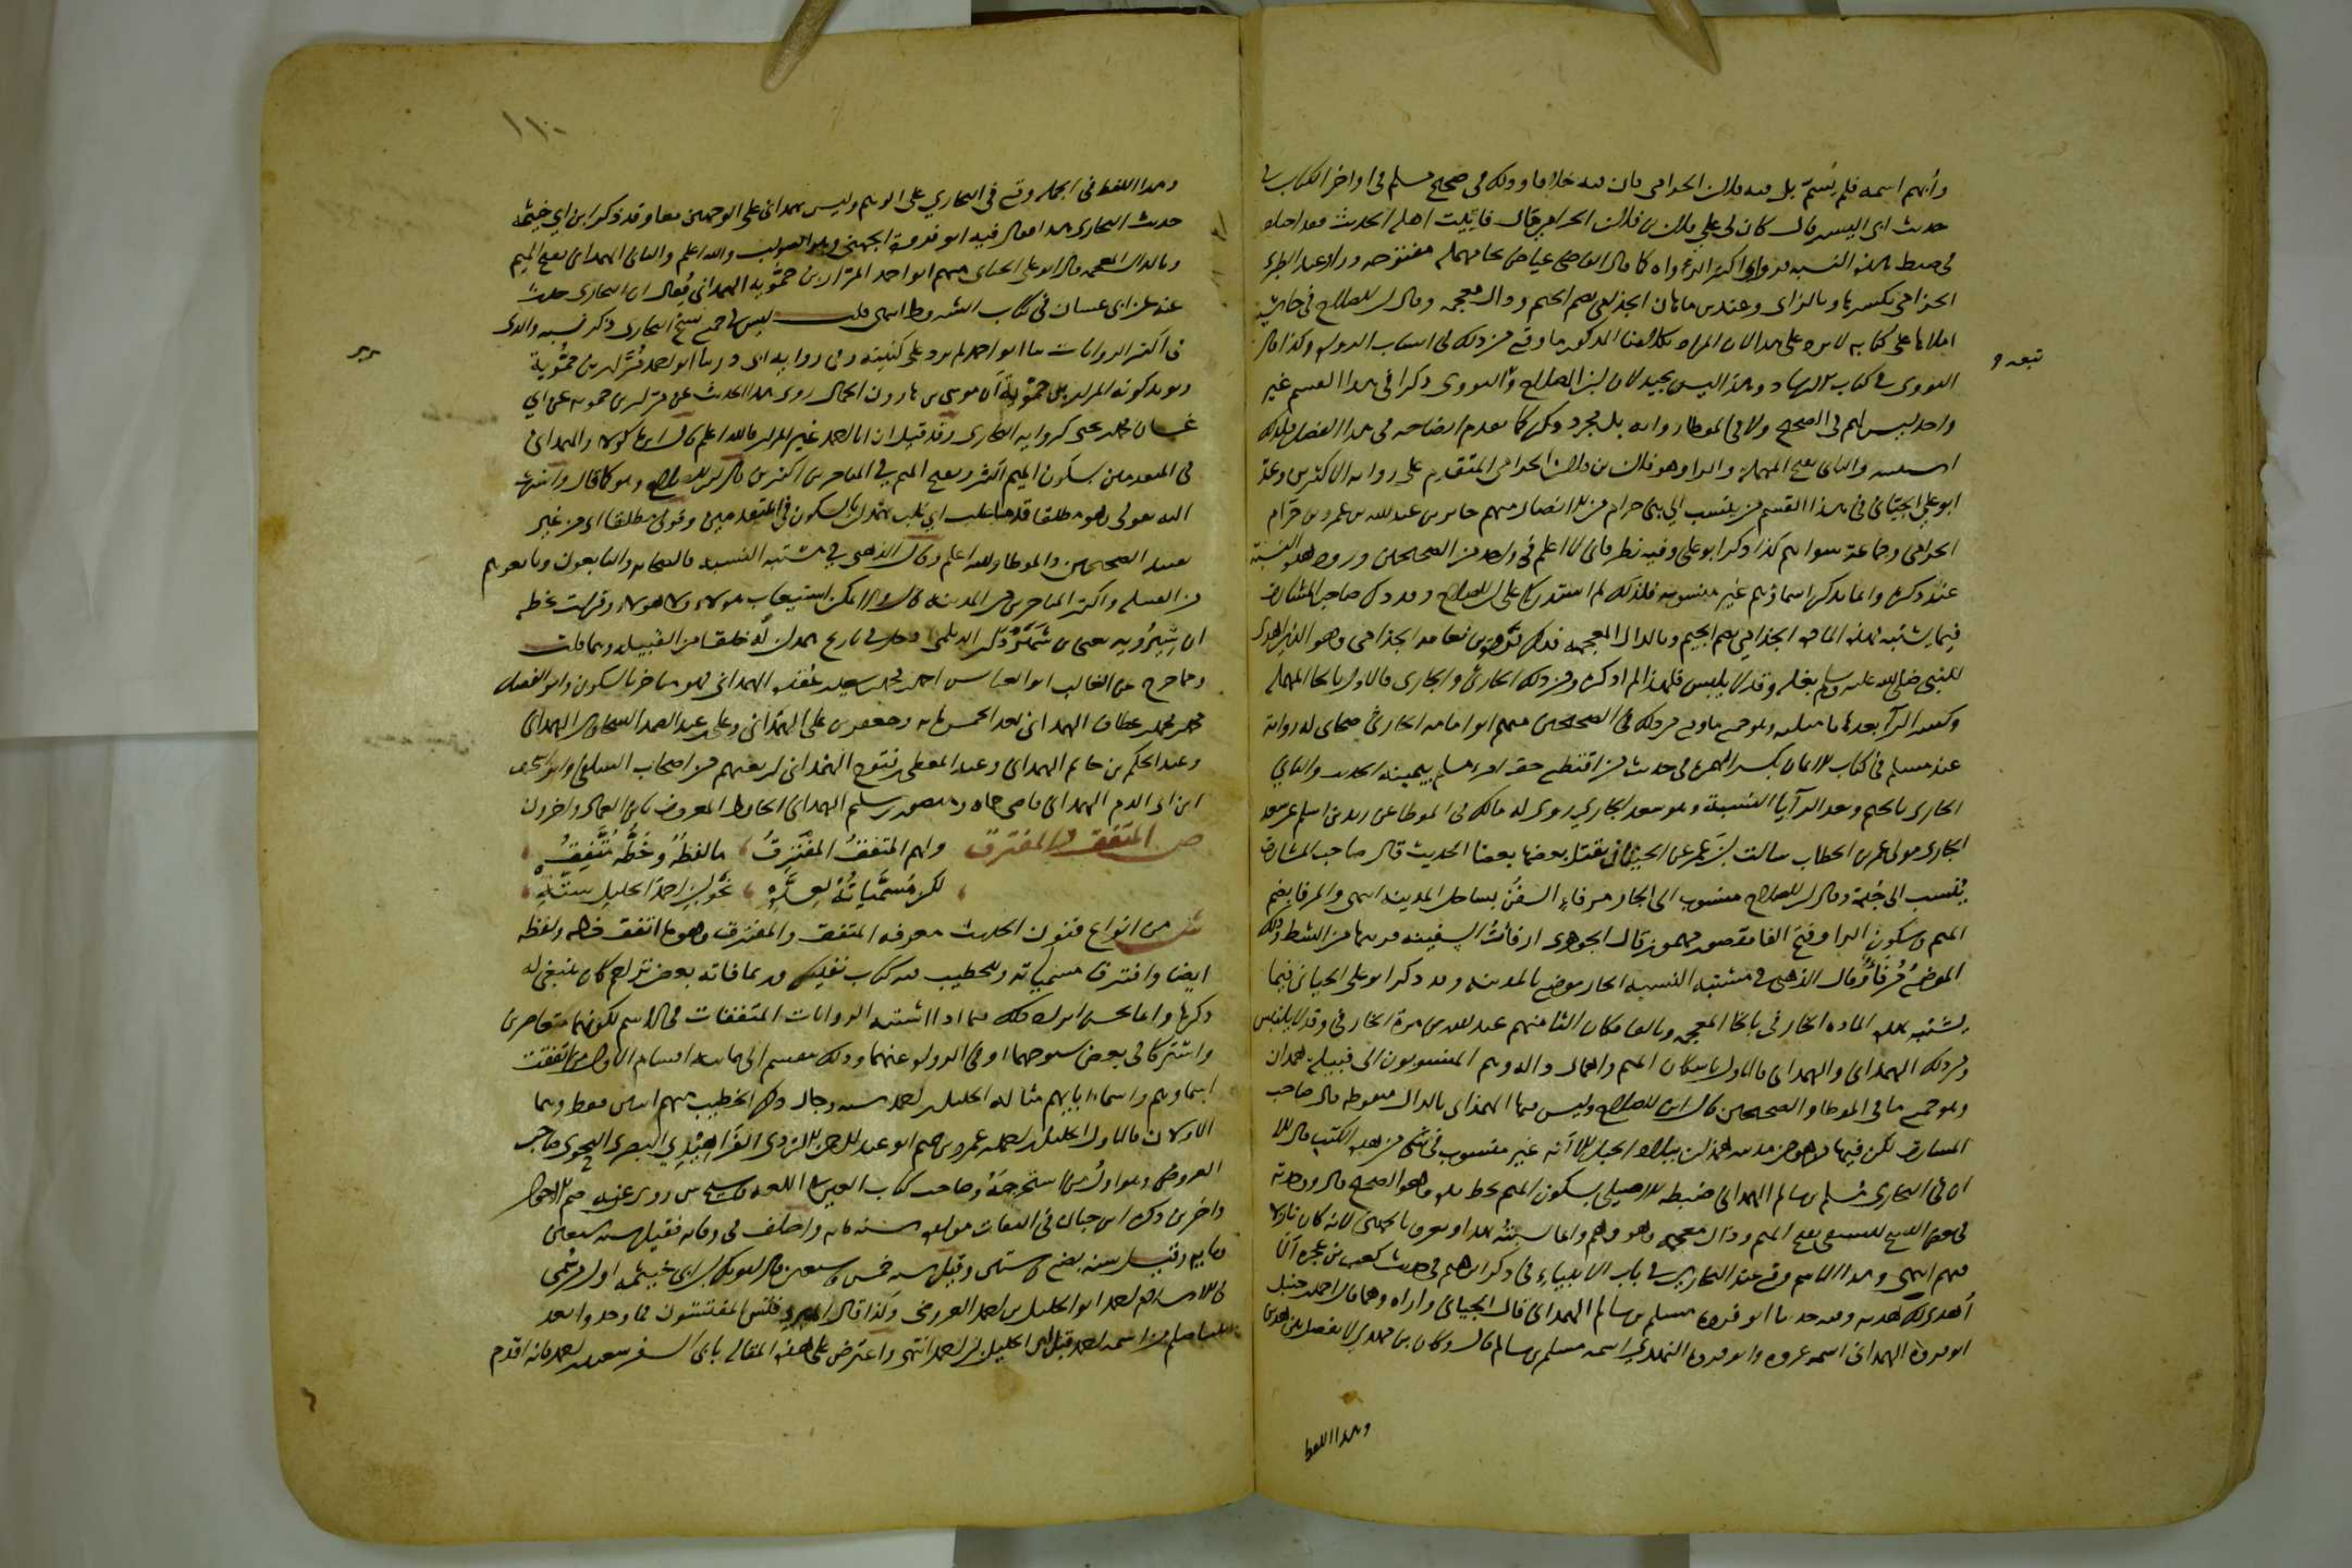 وأبهم اسمه فلم يسم بل فيه فلان الحرامي فان فيه خلافا وذلك في صحيح مسلم في اواخر الكتاب في
حديث ابي اليسر قال كان لي على فلان بن فلان الحرامي قال فاتيت اهله الحديث فقد اختلفوا
في ضبط هذه النسبة فرواه اكثر الرواه كما قال القاضي عياض بحا مهملة مفتوحه وراء وعند الطبري
الحزامي بكسرها وبالزاي وعند بن ماهان الجذامي بضم الجيم وذال معجمه وقال بن الصلاح في حاشية
املاها على كتابه لا يرد على هذا لان المراد بكلامنا المذكور ما وقع من ذلك في انساب الرواه وكذا قال
النووي في كتاب الارشاد وهذا ليس بجيد لان ابن الصلاح والنووي ذكرا في هذا القسم غير
واحد ليس لهم في الصحيح ولا في الموطا روايه بل مجرد ذكر كما تقدم ايضاحه في هذا الفصل
والثاني بفتح المهملة والرا وهو فلان بن فلان الحرامي المتقدم على روايه الاكثرين وعد
ابو علي الجياني في هذا القسم من ينتسب الى بني حرام من الانصار منهم جابر بن عبد الله بن عمرو بن حرام
الحرامي وجماعة سواهم كذا ذكر ابو علي وفيه نظر فاني لا اعلم في واحد من الصحيحين ورود هذه النسبة
عند ذكره وانما يذكر اسماؤهم غير منسوبه فلذلك لم استدركه على ابن الصلاح وقد ذكر صاحب المشارق
فيما يشتبه بهذه المادة الجذامي بضم الجيم وبالذال المعجمه فذكر فروة بن نعامة الجذامي وهو الذي اهدى
للنبي صلى الله عليه وسلم بغله وقد لا يلبس فلهذا لم اذكره ومن ذلك الحارثي والجاري فالاول بالحا المهملة
وكسر الرا بعدها ثا مثلثه وهو جميع ما وقع من ذلك في الصحيحين منهم ابو امامه الحارثي صحابي له رواية
عند مسلم في كتاب الايمان بكسر الهمزة في حديث من اقتطع حق امرء مسلم بيمينه الحديث والثاني
الجاري بالجيم وبعد الرآ يا النسبة وهو سعد الجاري روى له مالك في الموطا عن زيد بن اسلم عن سعد
الجاري مولى عمر بن الخطاب سالت بن عمر عن الحيتان يقتل بعضها بعضا الحديث قال صاحب المشارق
ينسب الى جده وقال بن الصلاح منسوب الى الجار مرفاء السفن بساحل المدينه انتهى والمرفا بضم
الميم وسكون الرا وفتح الفا مقصور مهموز قال الجوهري ارفأت السفينه قربتها من الشط وذلك
الموضع مرفأ وقال الذهبي في مشتبه النسبه الجار موضع بالمدينه وقد ذكر ابو علي الجياني فيما
يشتبه بهذه الماده الخارفي بالخا المعجمه وبالفا مكان الثا منهم عبد الله بن مرة الخارفي وقد لا يلتبس
ومن ذلك الهمداني والهمذاني فالاول باسكان الميم واهمال الدال وهم المنسوبون الى قبيلة همدان
وهو جميع ما في الموطا والصحيحين قال ابن الصلاح وليس فيها الهمذاني بالذال منقوطه قال صاحب
المشارق لكن فيها من هو من مدينه همذان ببلاد الجبل الا انه غير منسوب في شي من هذه الكتب قال الا
ان في البخاري مسلم بن سالم الهمداني ضبطه الاصيلي بسكون الميم بخط يده وهو الصحيح قال ووجدته
في بعض النسخ للنسفي بفتح الميم وذال معجمه وهو وهم وانما نسبته هذا ويعرف بالجهني لانه كان نازلا
فيهم انتهى وهذا الاسم وقع عند البخاري في باب الانبياء في ذكر ابراهيم في حديث كعب بن عجره الا
اهدي لك هديه وفيه حدثنا ابو فروه مسلم بن سالم الهمداني قال الجياني واراه وهما قال احمد بن حنبل
ابو فروة الهمداني اسمه عروه وابو فروه النهدي اسمه مسلم بن سالم قال وكان بن مهدي لا يفصل بين هذين
وهذا اللفظ
١١٠
وهذا اللفظ في الجمله وقع في البخاري على الوهم وليس همداني على الوجهين معا وقد ذكر ابن ابي خيثمة
حديث البخاري هذا فقال فيه ابو فروة الجهني وهو الصواب والله اعلم والثاني الهمذاني بفتح الميم
وبالذال المعجمه قال ابو علي الجياني منهم ابو احمد المرار بن حمويه الهمذاني يقال ان البخاري حدث
عنه عن ابي غسان في كتاب الشروط انتهى قلت ليس في جميع نسخ البخاري ذكر نسبه والذي
في اكثر الروايات حدثنا ابو احمد لم يزد على كنيته وفي روايه ابي ذر حدثنا ابو احمد مرار بن حموية
ويؤيد كونه المرار بن حمويه ان موسى بن هارون الحمال روى هذا الحديث عن مرار بن حمويه عن ابي
غسان محمد بن يحيى كروايه البخاري وقد قيل ان ابا احمد غير المرار فالله اعلم قال ابن ماكولا والهمداني
في المتقدمين بسكون الميم اكثر وبفتح الميم في المتاخرين اكثر بن الصلاح وهو كما قال واشرت
اليه بقولي وهو مطلقا قدما غلب اي غلب همدان بالسكون في المتقدمين وقولي مطلقا اي من غير
تقييد الصحيحين والموطا والله اعلم وقال الذهبي في مشتبه النسبه فالصحابه والتابعون وتابعوهم
من القبيله واكثر المتاخرين من المدينه قال ولا يمكن استيعاب هولاء ولا هولاء
ان شيرويه يعني بن شهردار الديلمي في تاريخ همذان خلقا من القبيله ومما قلت
ومما خرج عن الغالب ابو العباس احمد بن محمد بن سعيد بن عقده الهمداني فهو متاخر بالسكون وابو الفضل
محمد بن محمد بن عطاف الهمداني بعد الخمس مايه وجعفر بن علي الهمداني وعلي بن عبد الصمد السخاوي الهمداني
وعبد الحكم بن حاتم الهمداني وعبد المعطي بن فتوح الهمداني اربعتهم من اصحاب السلفي وابو اسحق
ابن ابي الدم الهمداني قاضي حماه ومنصور بن سليم الهمداني الحافظ المعروف بابن العماديه واخرون
ص المتفق والمفترق ولهم المتفق المفترق ما لفظه وخطه متفق
لكن مسمياته لعدة نحو ابن احمد الخليل ستة
ش من انواع فنون الحديث معرفه المتفق والمفترق وهو ما اتفق خطه ولفظه
ايضا وافترقت مسمياته وللخطيب فيه كتاب نفيس وربما فاته بعض تراجم كان ينبغي له
ذكرها وانما يحسن ايراد ذلك فيما اذا اشتبه الروايات المتفقات في الاسم لكونهما متعاصرين
واشتركا في بعض شيوخهما او في الرواه عنهما وذلك ينقسم الى ثمانيه اقسام الاول من اتفقت
اسماؤهم واسماء ابائهم مثاله الخليل بن احمد سته رجال ذكر الخطيب منهم اثنين فقط وهما
الاولان فالاول الخليل بن احمد بن عمرو بن تميم ابو عبد الرحمن الازدي الفراهيدي البصري النحوي صاحب
العروض وهو اول من استخرجه وصاحب كتاب العين في اللغه وشيخ سيبويه روى عن عاصم الاحول
واخرين ذكره ابن حبان في الثقات مولده سنه مائه واختلف في وفاته فقيل سنه سبعين
ومايه وقيل سنه بضع وستين وقيل سنه خمس وسبعين قال ابو بكر بن ابي خيثمه اول من سمي
في الاسلام احمد ابو الخليل بن احمد العروضي وكذا قال المبرد فتش المفتشون فما وجدوا بعد
نبينا صلى الله عليه وسلم من اسمه احمد قبل ابي الخليل بن احمد انتهى واعترض على هذه المقاله بابي السفر سعيد بن احمد فانه اقدم